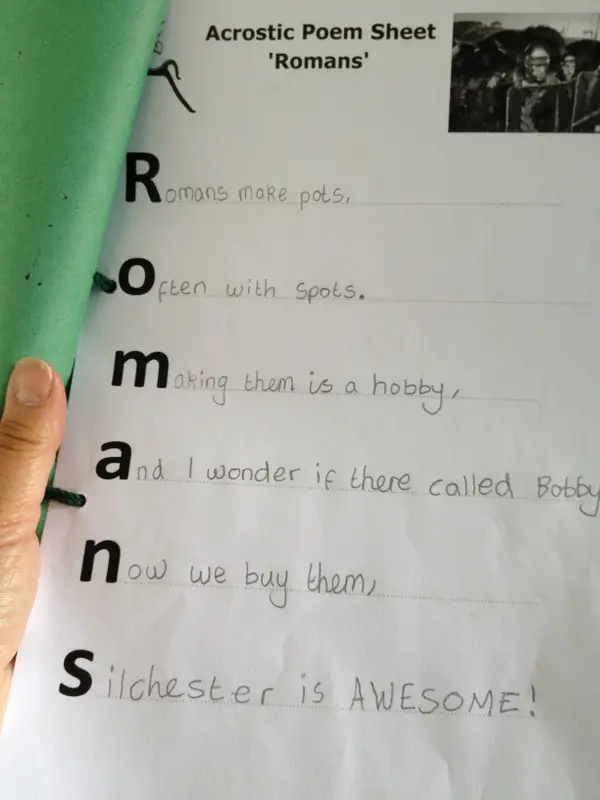 Acrostic Poem Sheet
'Romans'
Romans make pots,
often with spots.
making them is a hobby,
and I wonder if there called Bobby
now we buy them,
Silchester is AWESOME!